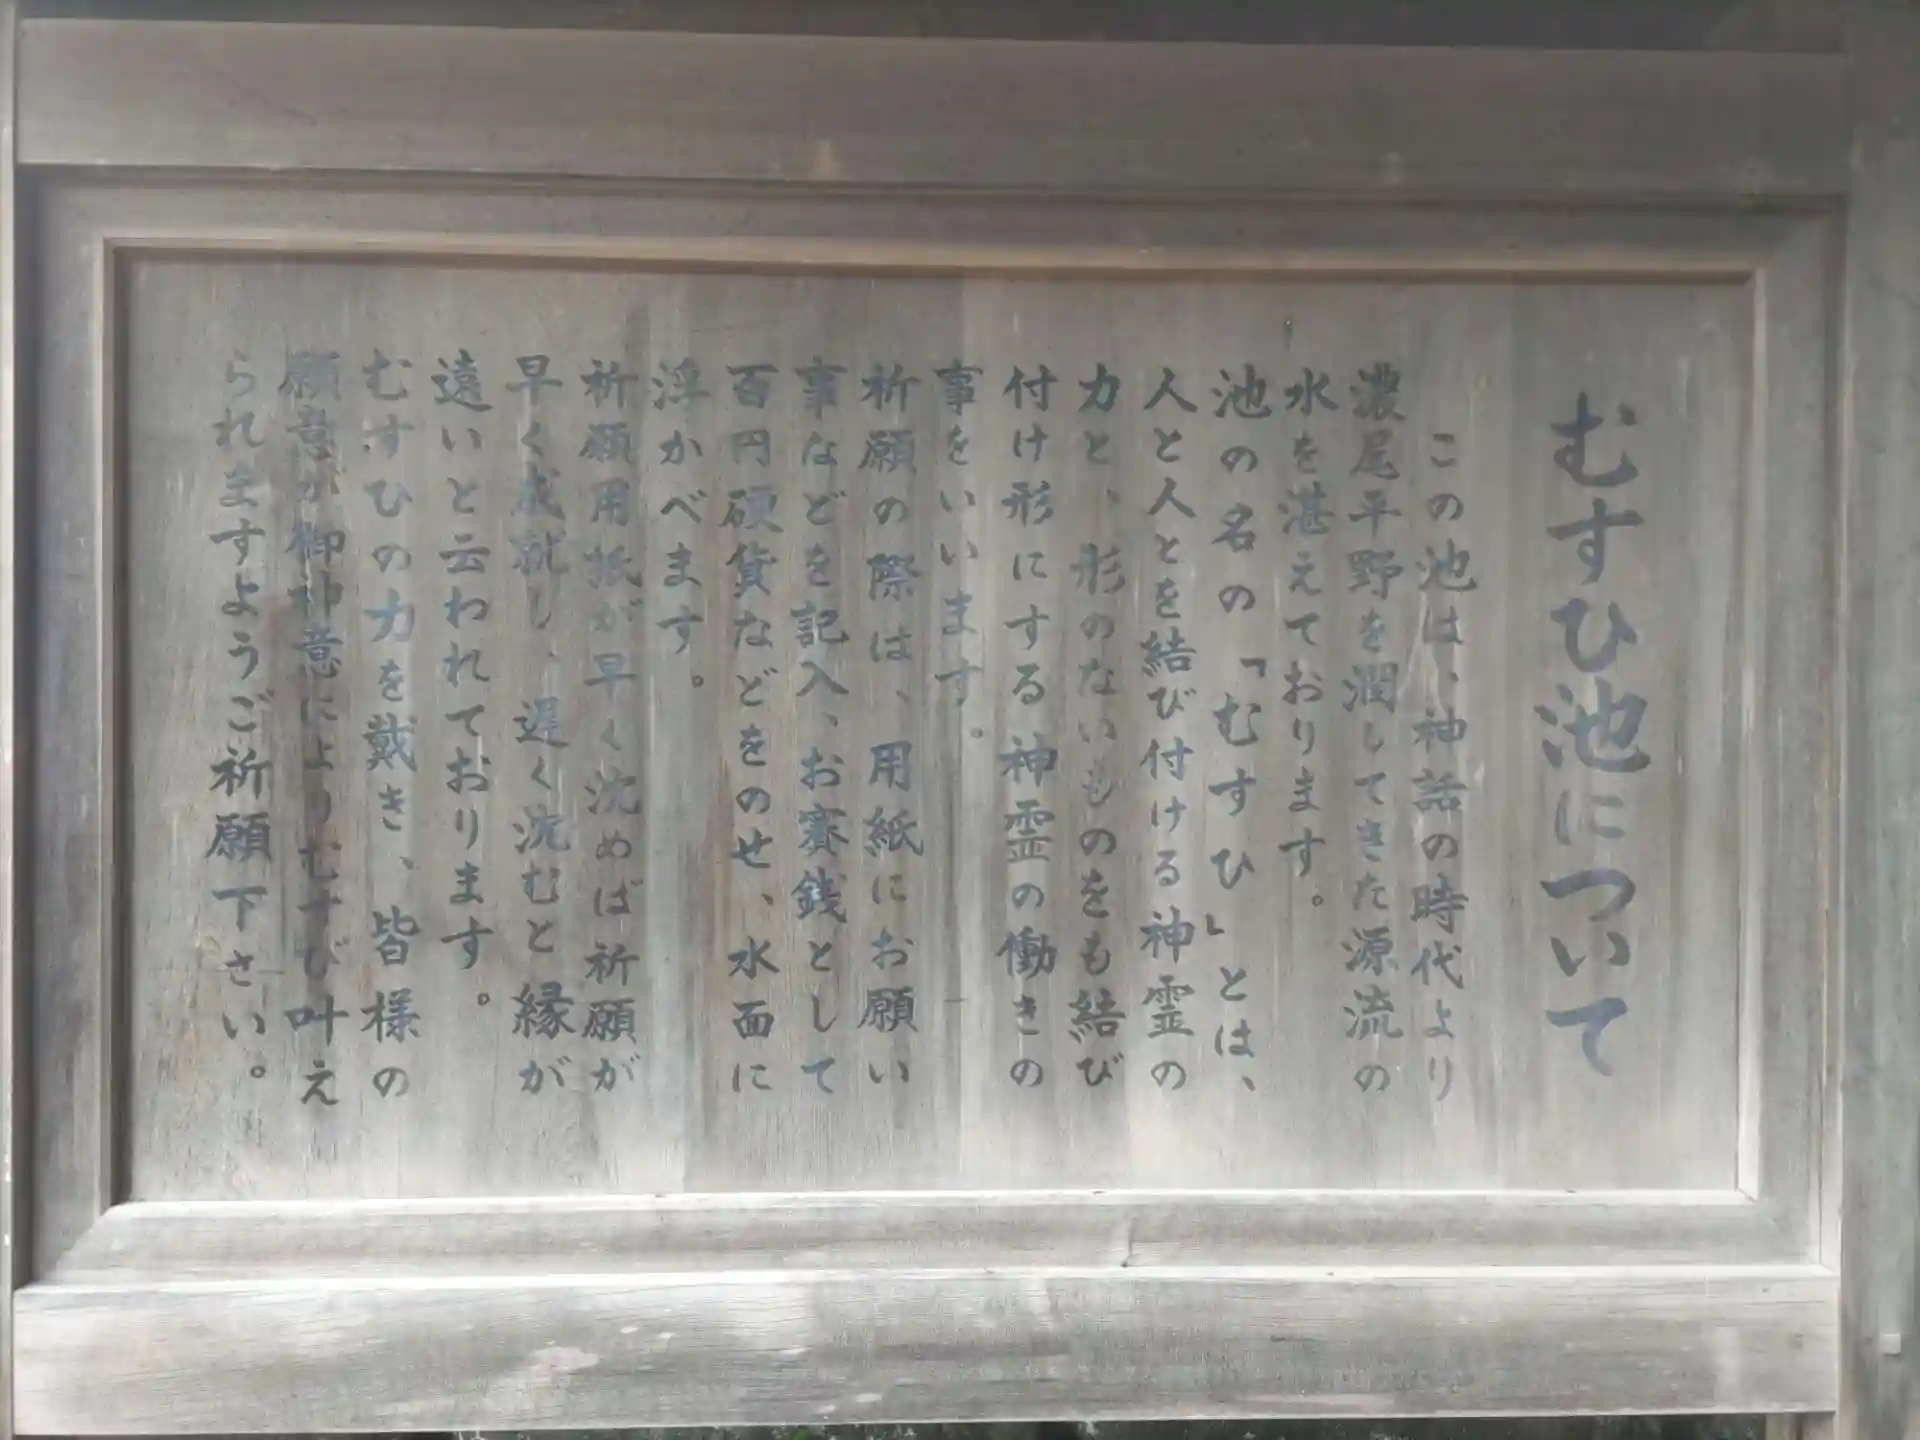 むすひ池について
この池は、神話の時代より
濃尾平野を潤してきた源流の
水を湛えております。
池の名の「むすひ」とは、
人と人とを結び付ける神霊の
力と、形のないものをも結び
付け形にする神霊の働きの
事をいいます。
祈願の際は、用紙にお願い
事などを記入、お賽銭として
百円硬貨などをのせ、水面に
浮かべます。
祈願用紙が早く沈めば祈願が
早く成就し、遅く沈むと縁が
遠いと云われております。
むすひの力を戴き、皆様の
願意が御神意によりむすび叶え
られますようご祈願下さい。